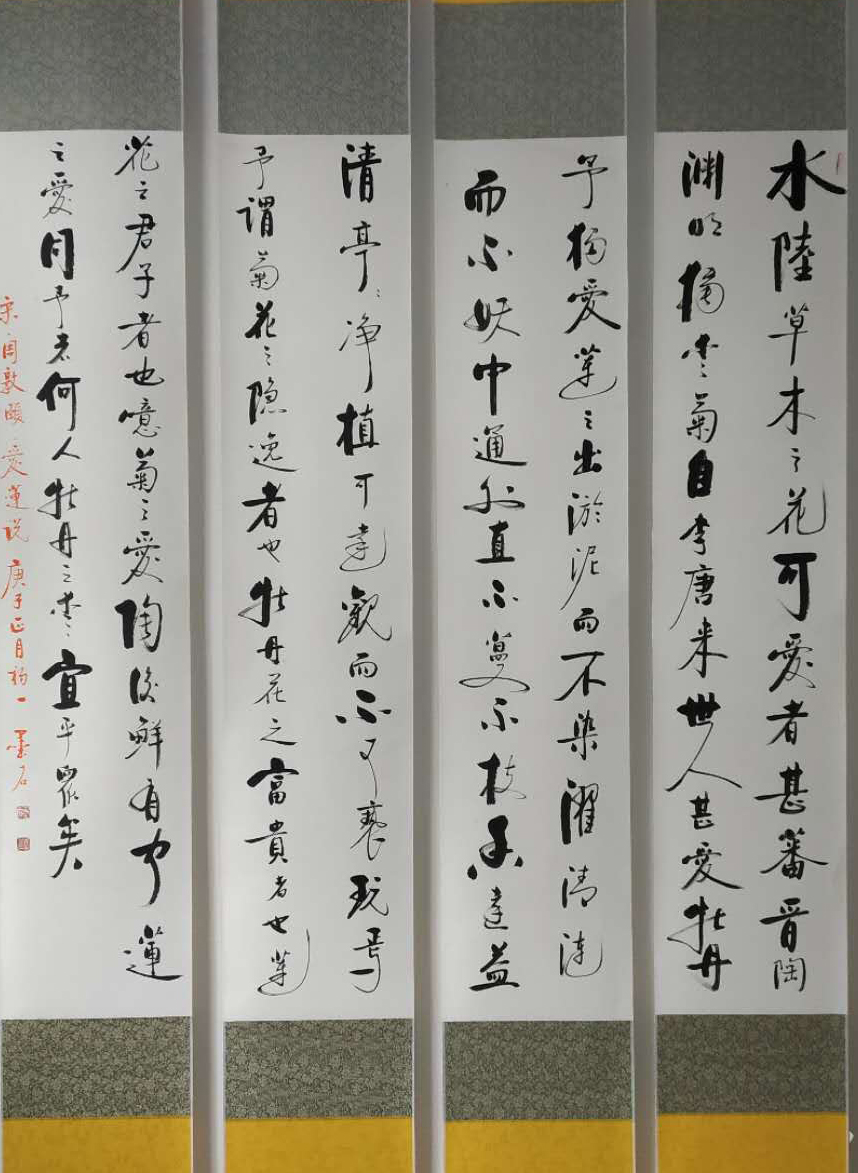 水陸草木之花可愛者甚蕃晋陶
渊明獨爱菊自李唐来世人甚愛牡丹
予獨愛蓮之出淤泥而不染濯清涟
而不妖中通外直不蔓不枝香遠益
清亭〻净植可遠觀而不可亵玩焉
予謂菊花之隐逸者也牡丹花之富貴者也蓮
花之君子者也噫菊之愛陶後鮮有聞蓮
之愛同予者何人牡丹之爱宜乎眾矣
宋周敦颐爱蓮说 庚子正月初一 墨石